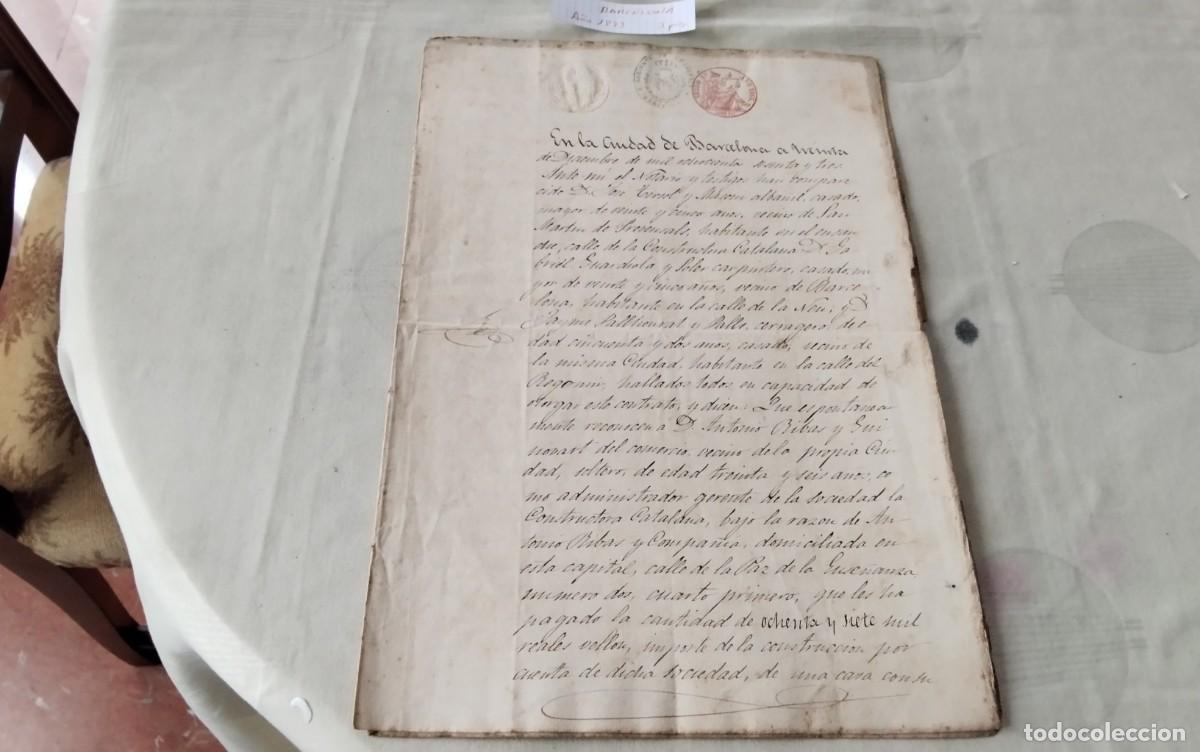 Barcelona
Año 1863
En la Ciudad de Barcelona a treinta
de Diciembre de mil ochocientos sesenta y tres
Ante mi el Notario y testigos han compare
cido D. José y albañil, casado,
mayor de veinte y cinco años, vecino de San
Martin de Provensals, habitante en el ensan
che, calle de la Constructora Catalana D. Ga
briel Guardiola y Soler carpintero, casado, ma
yor de veinte y cinco años, vecino de Barce
lona, habitante en la calle de la Neu; y D.
Jayme y Valls, cerragero, de e
dad cincuenta y dos años, casado, vecino de
la misma Ciudad, habitante en la calle del
hallados todos en capacidad de
otorgar este contrato, y dicen: Que espontanea
mente reconocen a D. Antonio Ribas y Gui
nonart del comercio, vecino de la propia Ciu
dad, soltero, de edad treinta y seis años, co
mo administrador gerente de la sociedad la
Constructora Catalana, bajo la razon de An
tonio Ribas y Compañia, domiciliada en
esta capital, calle de la Paz de la Enseñanza,
numero dos, cuarto primero, que les ha
pagado la cantidad de ochenta y siete mil
reales vellon, importe de la construccion por
cuenta de dicha sociedad, de una casa consu
todocoleccion